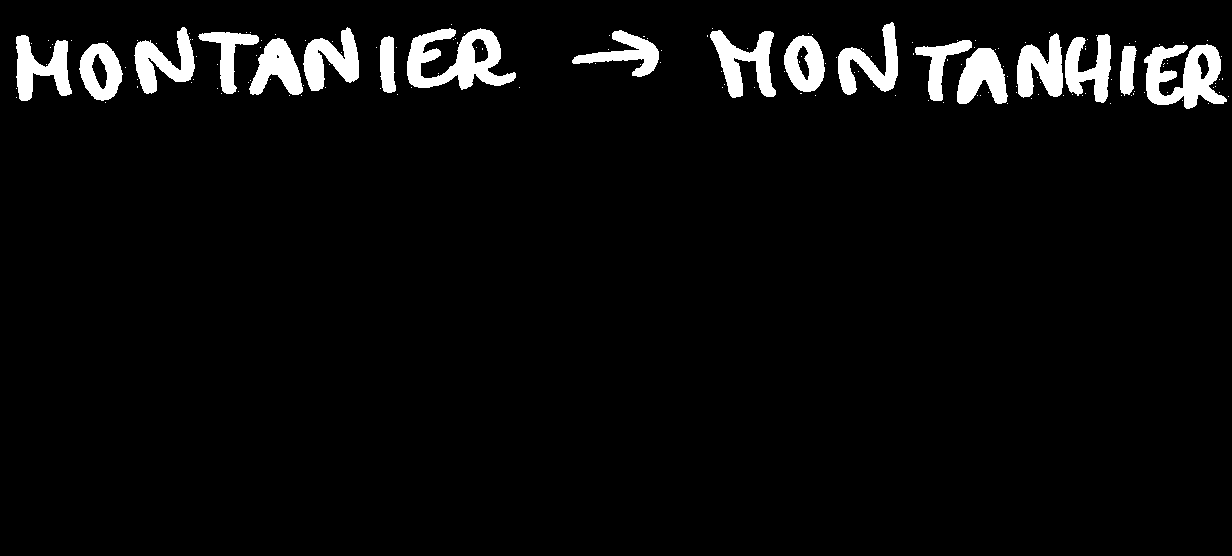 MONTANIER → MONTANHIER